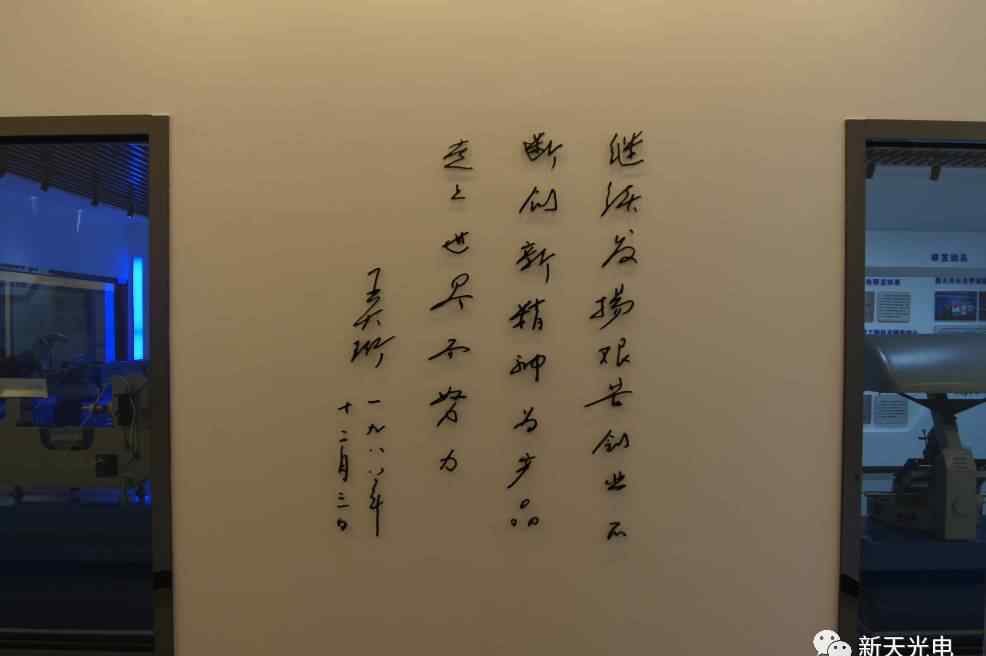 继续发揚艰苦创业不
断创新精神为产品
走上世界而努力
王大珩
一九八八年
十二月三日
新天光电